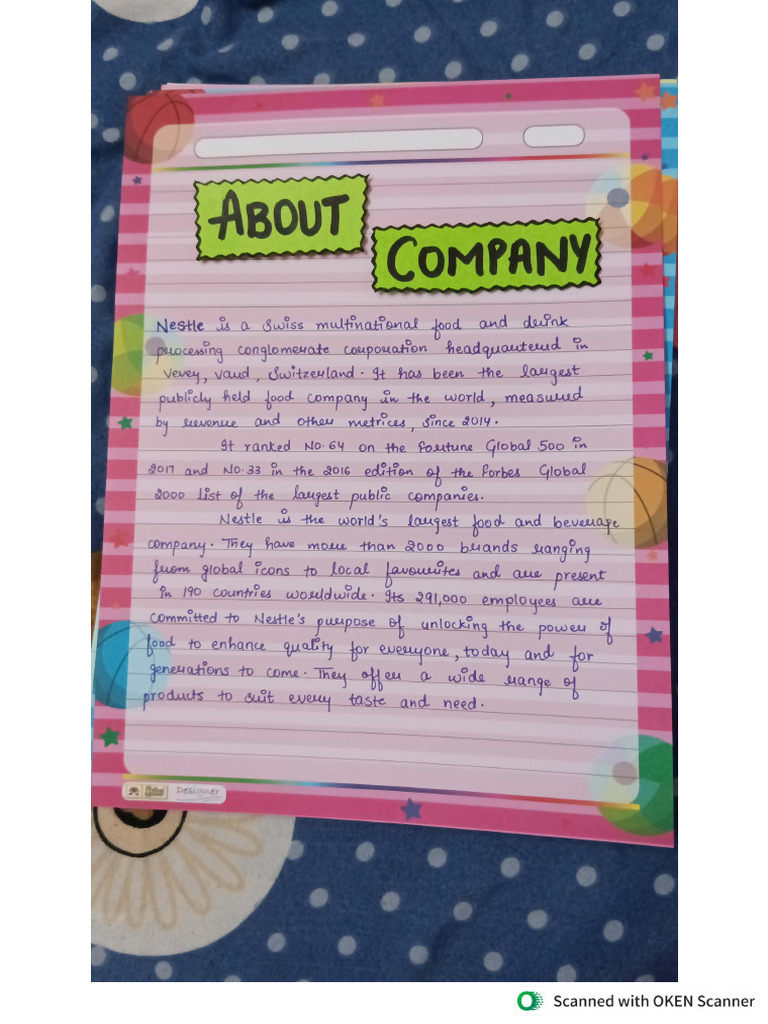 ABOUT
COMPANY
Nestle is a Swiss multinational food and drink
processing conglomerate corporation headquartered in
Vevey, Vaud, Switzerland. It has been the largest
publicly held food company in the world, measured
by revenue and other metrices, since 2014.
It ranked No.64 on the Fortune Global 500 in
2017 and No.33 in the 2016 edition of the Forbes Global
2000 list of the largest public companies.
Nestle is the world's largest food and beverage
company. They have more than 2000 brands ranging
from global icons to local favourites and are present
in 190 countries worldwide. Its 291,000 employees are
committed to Nestle's purpose of unlocking the power of
food to enhance quality for everyone, today and for
generations to come. They offer a wide range of
products to suit every taste and need.
Designer
Scanned with OKEN Scanner